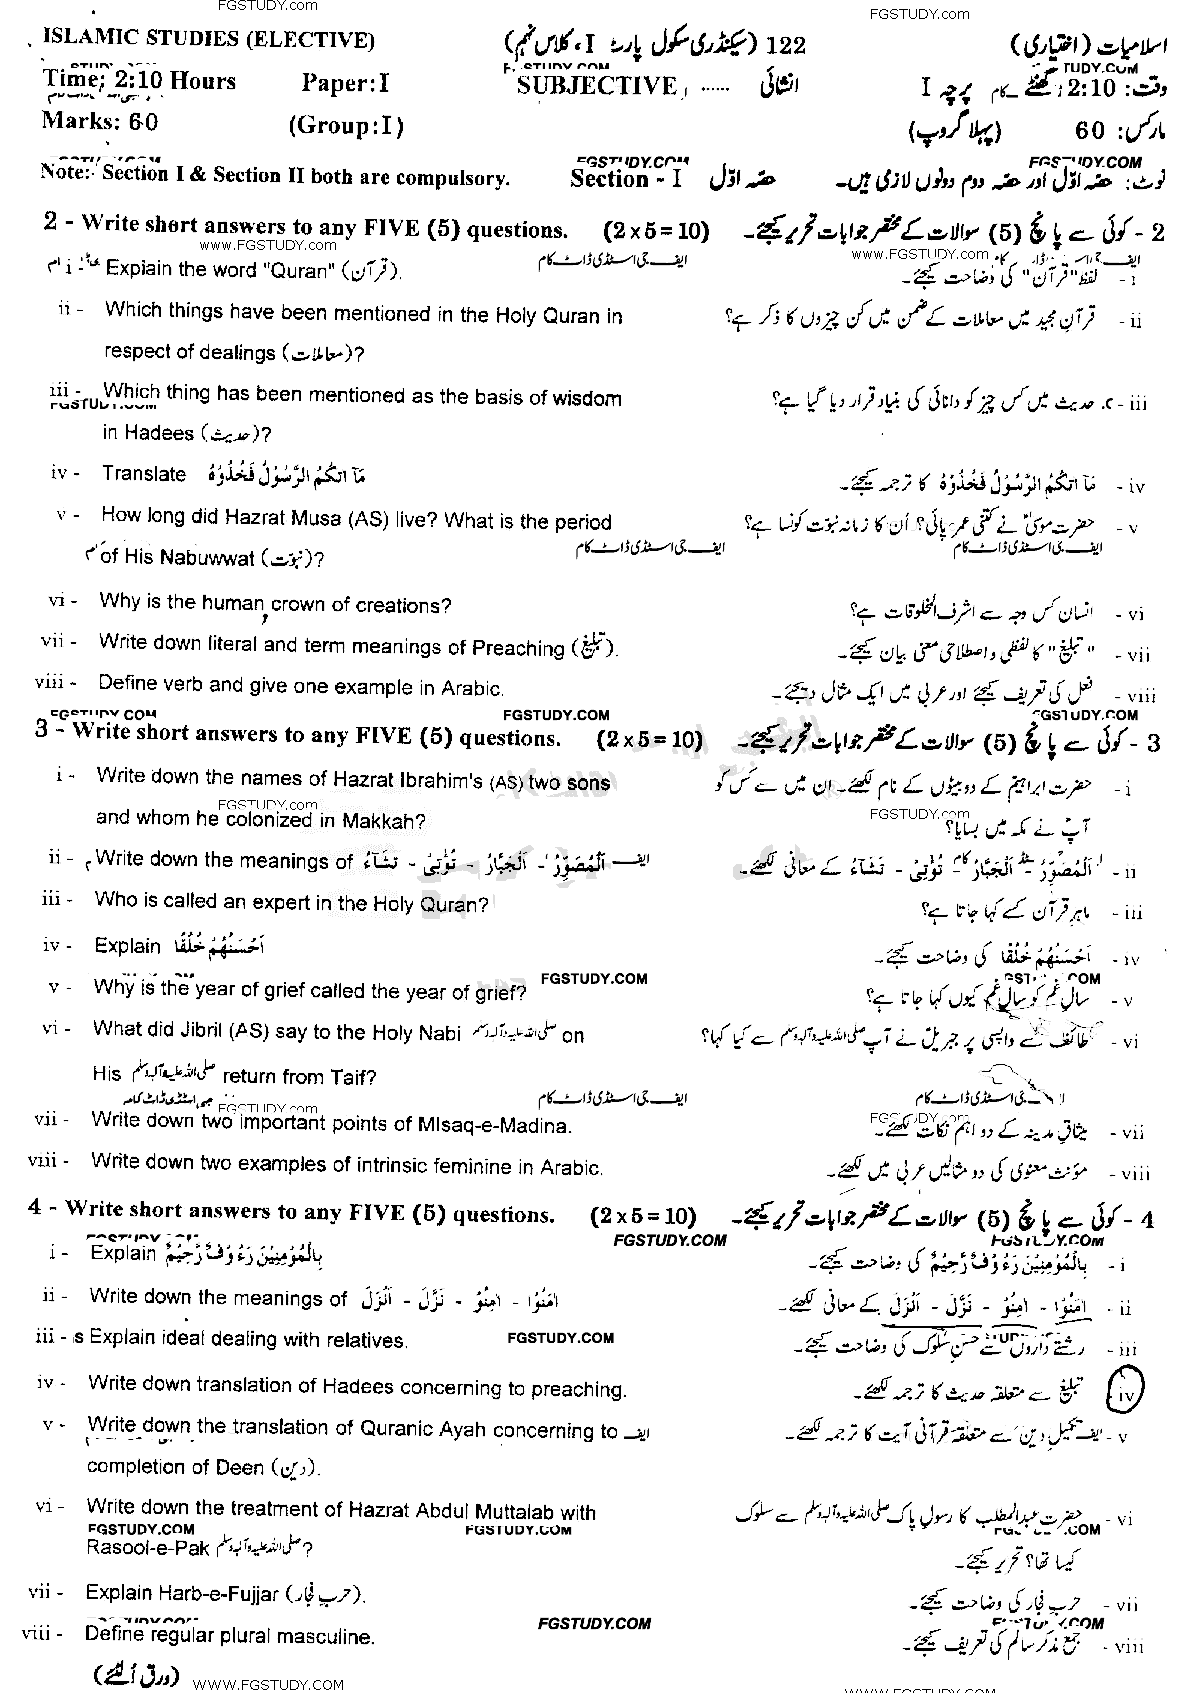 FGSTUDY.com FGSTUDY.com
ISLAMIC STUDIES (ELECTIVE) 122 (سیکنڈری سکول پارٹ I، کلاس نہم) اسلامیات (اختیاری)
Time: 2:10 Hours Paper: I SUBJECTIVE ...... انشائی پرچہ I وقت: 2:10 گھنٹے
Marks: 60 (Group: I) (پہلا گروپ) مارکس: 60
FGSTUDY.COM FGSTUDY.COM
Note:- Section I & Section II both are compulsory. Section - I حصہ اوّل نوٹ: حصہ اوّل اور حصہ دوم دونوں لازمی ہیں۔
2 - Write short answers to any FIVE (5) questions. (2 x 5 = 10) 2 - کوئی سے پانچ (5) سوالات کے مختصر جوابات تحریر کیجئے۔
www.FGSTUDY.com ایف جی اسٹڈی ڈاٹ کام www.FGSTUDY.com
i - Explain the word "Quran" (قرآن). i - لفظ "قرآن" کی وضاحت کیجئے۔
ii - Which things have been mentioned in the Holy Quran in ii - قرآن مجید میں معاملات کے ضمن میں کن چیزوں کا ذکر ہے؟
respect of dealings (معاملات)?
iii - Which thing has been mentioned as the basis of wisdom iii - حدیث میں کس چیز کو دانائی کی بنیاد قرار دیا گیا ہے؟
FGSTUDY.COM
in Hadees (حدیث)?
iv - Translate مَآ اٰتٰكُمُ الرَّسُوْلُ فَخُذُوْهُ iv - مَآ اٰتٰكُمُ الرَّسُوْلُ فَخُذُوْهُ کا ترجمہ کیجئے۔
v - How long did Hazrat Musa (AS) live? What is the period v - حضرت موسیٰؑ نے کتنی عمر پائی؟ اُن کا زمانہ نبوّت کونسا ہے؟
of His Nabuwwat (نبوّت)? ایف جی اسٹڈی ڈاٹ کام ایف جی اسٹڈی ڈاٹ کام
vi - Why is the human crown of creations? vi - انسان کس وجہ سے اشرف المخلوقات ہے؟
vii - Write down literal and term meanings of Preaching (تبلیغ). vii - "تبلیغ" کا لفظی و اصطلاحی معنی بیان کیجئے۔
viii - Define verb and give one example in Arabic. viii - فعل کی تعریف کیجئے اور عربی میں ایک مثال دیجئے۔
FGSTUDY.COM FGSTUDY.COM FGSTUDY.COM
3 - Write short answers to any FIVE (5) questions. (2 x 5 = 10) 3 - کوئی سے پانچ (5) سوالات کے مختصر جوابات تحریر کیجئے۔
i - Write down the names of Hazrat Ibrahim's (AS) two sons i - حضرت ابراہیمؑ کے دو بیٹوں کے نام لکھئے۔ ان میں سے کس کو
FGSTUDY.com FGSTUDY.com
and whom he colonized in Makkah? آپؑ نے مکہ میں بسایا؟
ii - Write down the meanings of اَلْمُصَوِّرُ - اَلْجَبَّارُ - تُؤْتِیْ - تَشَآءُ ii - اَلْمُصَوِّرُ - اَلْجَبَّارُ - تُؤْتِیْ - تَشَآءُ کے معانی لکھئے۔
iii - Who is called an expert in the Holy Quran? iii - ماہرِ قرآن کسے کہا جاتا ہے؟
iv - Explain اَحْسَنُهُمْ خُلُقًا iv - اَحْسَنُهُمْ خُلُقًا کی وضاحت کیجئے۔
FGSTUDY.COM
v - Why is the year of grief called the year of grief? v - سالِ غم کو سالِ غم کیوں کہا جاتا ہے؟
vi - What did Jibril (AS) say to the Holy Nabi صلی اللہ علیہ وآلہ وسلم on vi - طائف سے واپسی پر جبریلؑ نے آپ صلی اللہ علیہ وآلہ وسلم سے کیا کہا؟
His صلی اللہ علیہ وآلہ وسلم return from Taif?
FGSTUDY.com ایف جی اسٹڈی ڈاٹ کام
vii - Write down two important points of MIsaq-e-Madina. vii - میثاقِ مدینہ کے دو اہم نکات لکھئے۔
viii - Write down two examples of intrinsic feminine in Arabic. viii - مؤنث معنوی کی دو مثالیں عربی میں لکھئے۔
4 - Write short answers to any FIVE (5) questions. (2 x 5 = 10) 4 - کوئی سے پانچ (5) سوالات کے مختصر جوابات تحریر کیجئے۔
FGSTUDY.COM FGSTUDY.COM
i - Explain بِالْمُؤْمِنِیْنَ رَءُوْفٌ رَّحِیْمٌ i - بِالْمُؤْمِنِیْنَ رَءُوْفٌ رَّحِیْمٌ کی وضاحت کیجئے۔
ii - Write down the meanings of اٰمَنُوْا - اٰمِنُوْ - نَزَّلَ - اَنْزَلَ ii - اٰمَنُوْا - اٰمِنُوْ - نَزَّلَ - اَنْزَلَ کے معانی لکھئے۔
iii - Explain ideal dealing with relatives. FGSTUDY.COM iii - رشتے داروں سے حسنِ سلوک کی وضاحت کیجئے۔
iv - Write down translation of Hadees concerning to preaching. iv - تبلیغ سے متعلقہ حدیث کا ترجمہ لکھئے۔
v - Write down the translation of Quranic Ayah concerning to v - تکمیلِ دین سے متعلقہ قرآنی آیت کا ترجمہ لکھئے۔
completion of Deen (دین).
vi - Write down the treatment of Hazrat Abdul Muttalab with vi - حضرت عبدالمطلب کا رسولِ پاک صلی اللہ علیہ وآلہ وسلم سے سلوک
FGSTUDY.COM FGSTUDY.COM
Rasool-e-Pak صلی اللہ علیہ وآلہ وسلم? کیسا تھا؟ تحریر کیجئے۔
vii - Explain Harb-e-Fujjar (حربِ فجار). vii - حربِ فجار کی وضاحت کیجئے۔
FGSTUDY.COM
viii - Define regular plural masculine. viii - جمع مذکر سالم کی تعریف کیجئے۔
(ورق اُلٹئے) WWW.FGSTUDY.COM WWW.FGSTUDY.COM